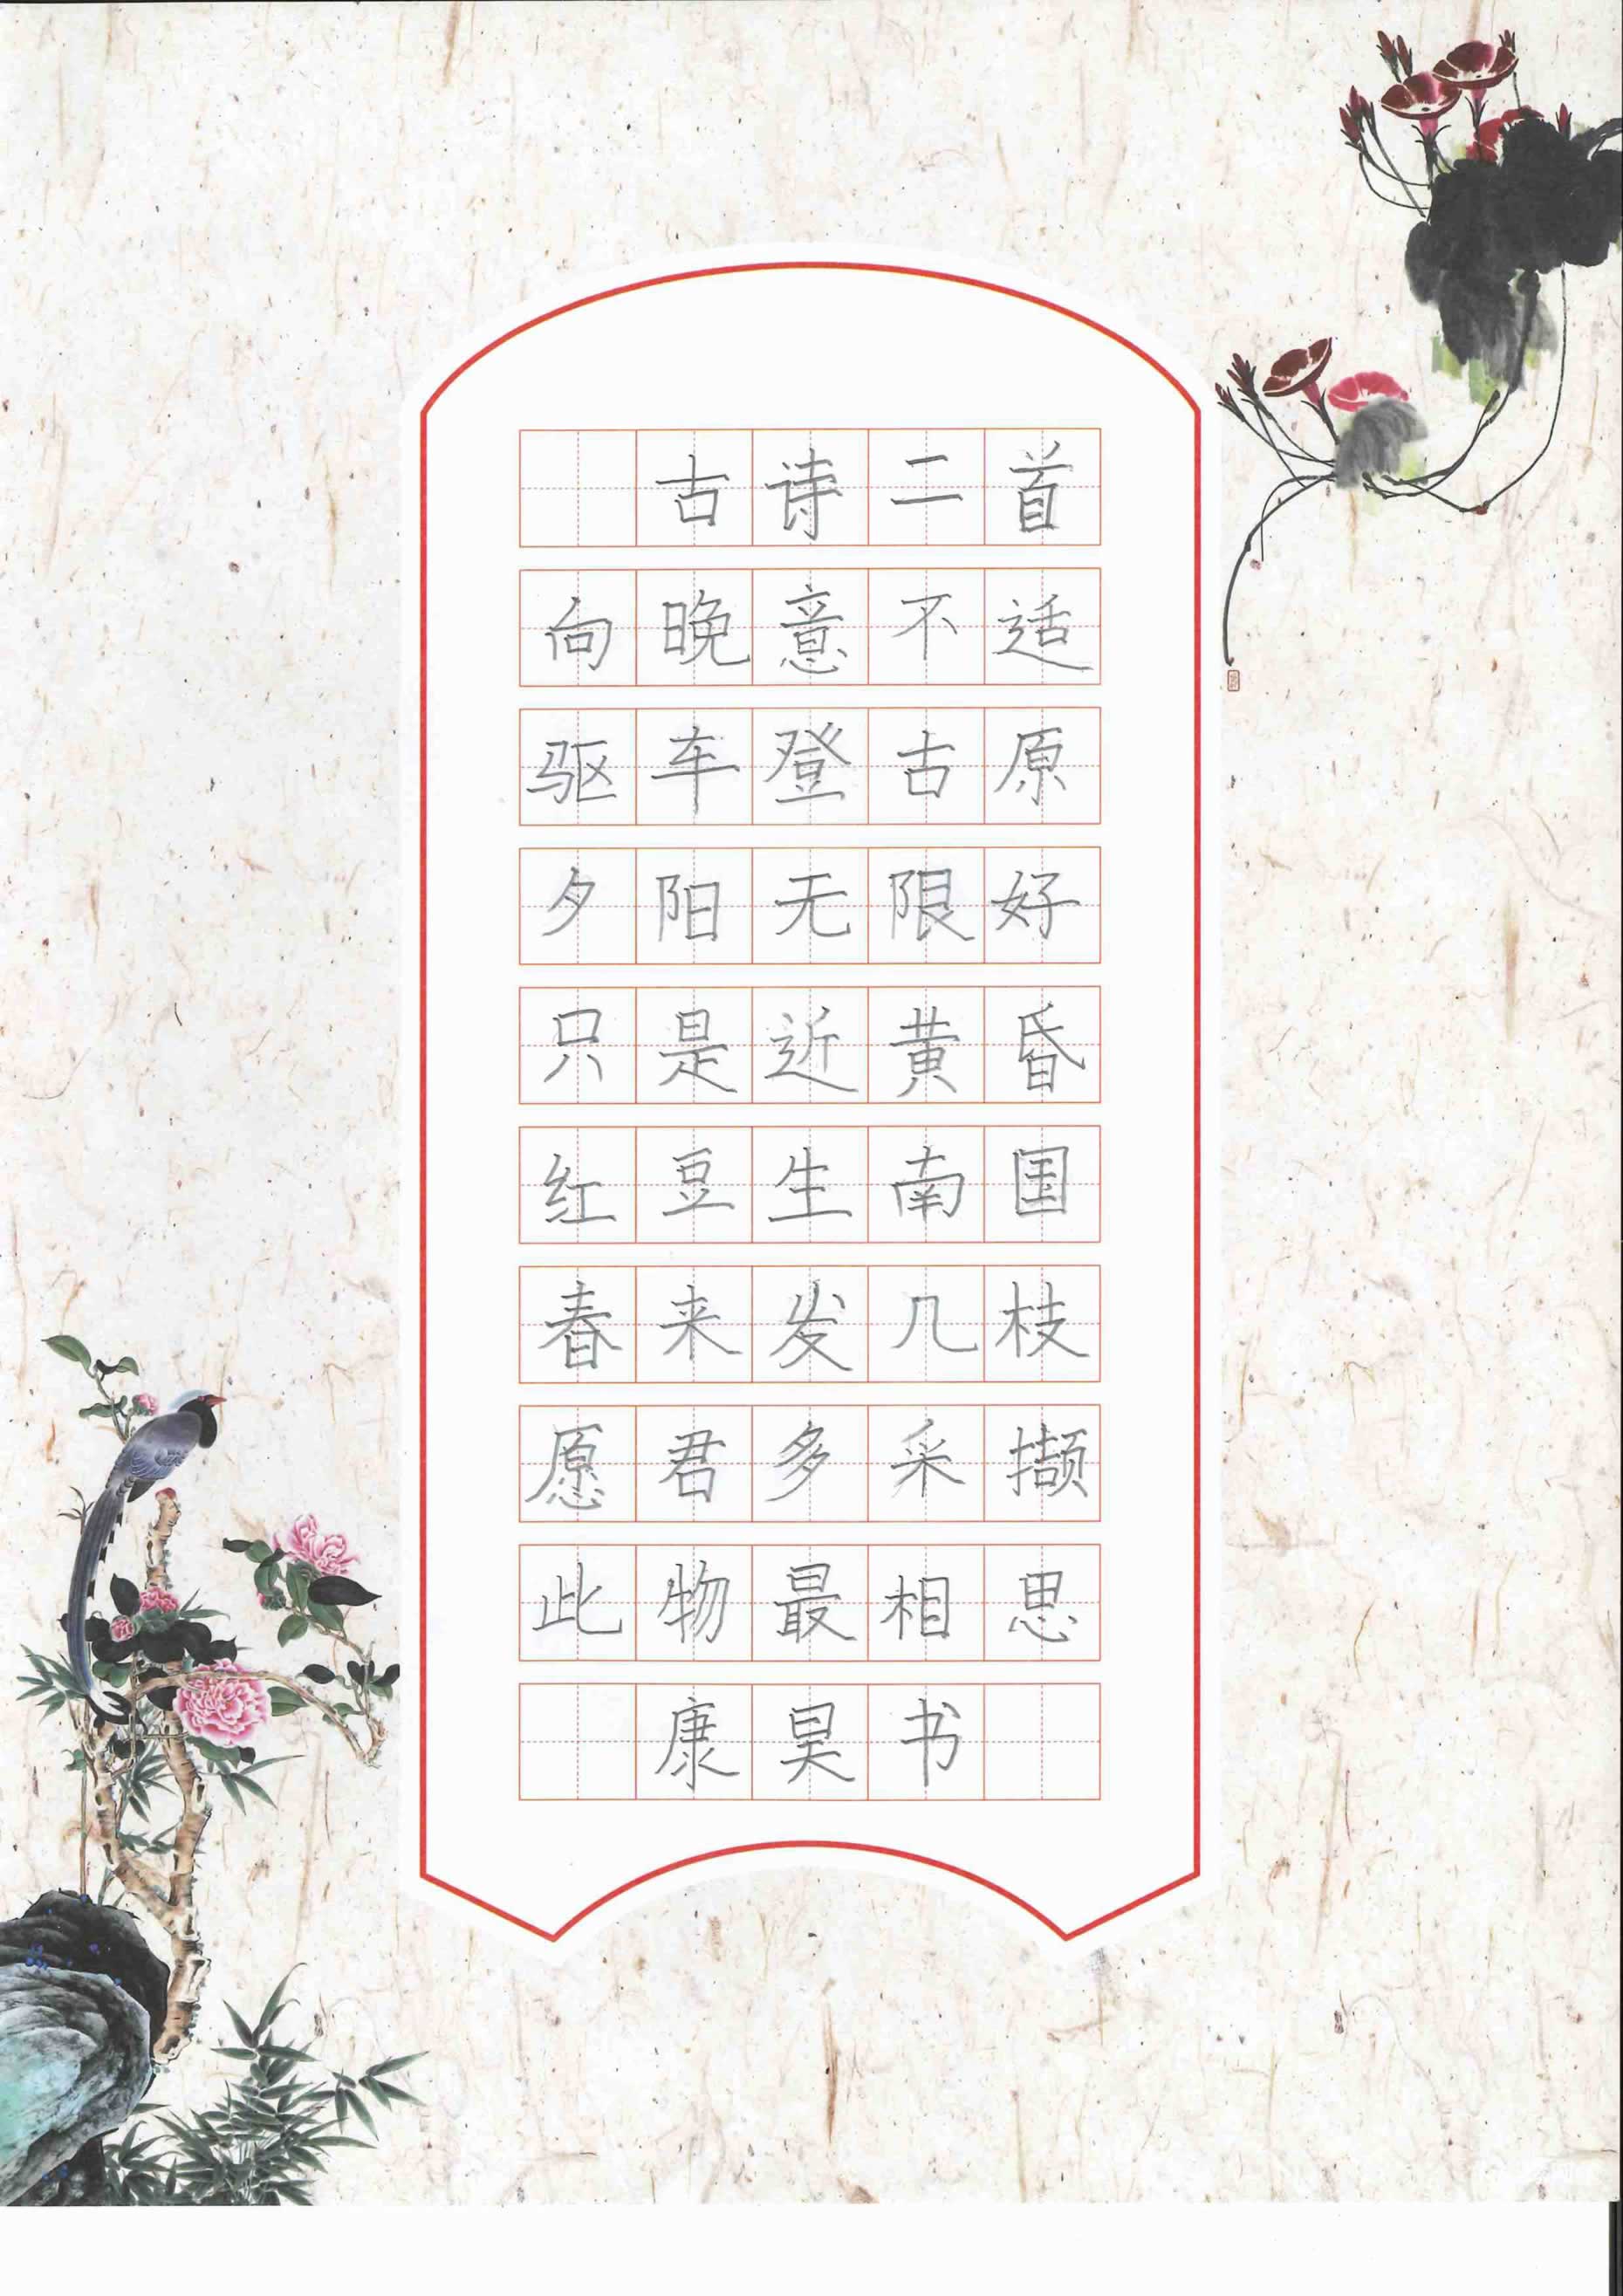 古诗二首
向晚意不适
驱车登古原
夕阳无限好
只是近黄昏
红豆生南国
春来发几枝
愿君多采撷
此物最相思
康昊书